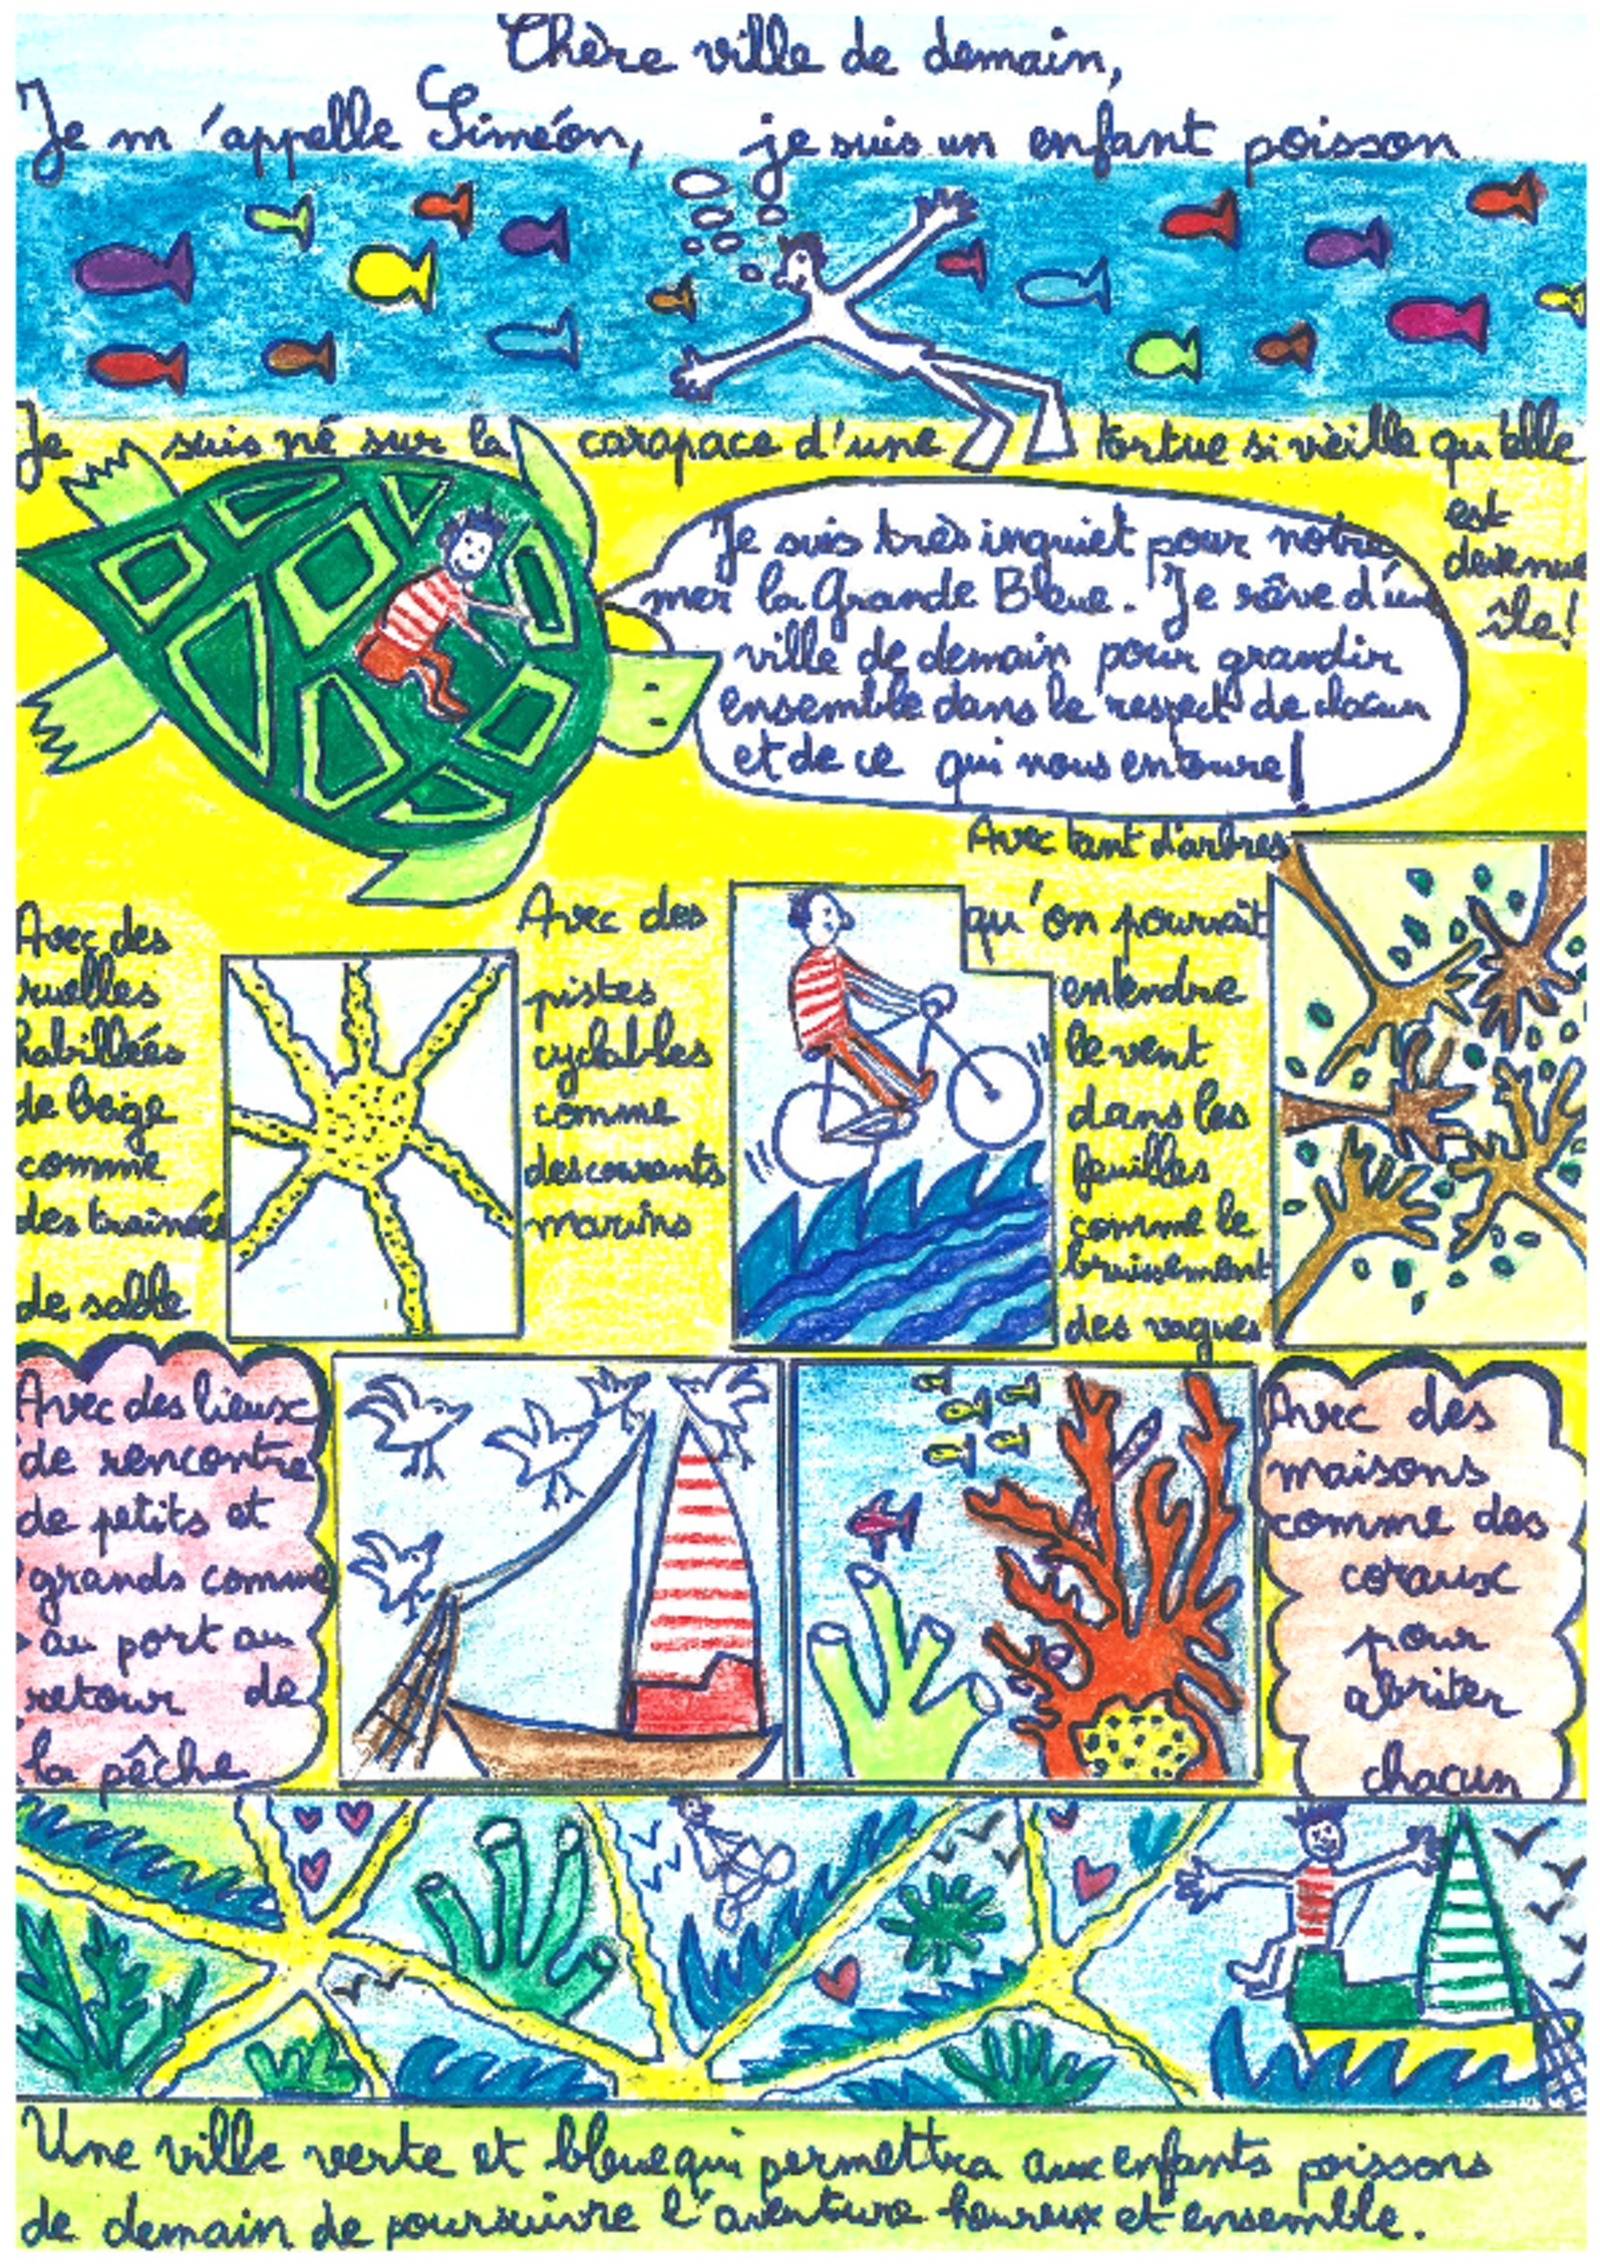 Chère ville de demain,
Je m'appelle Siméon, je suis un enfant poisson
Je suis né sur la carapace d'une tortue si vieille qu'elle
est
devenue
île!
Je suis très inquiet pour notre
mer la Grande Bleue. Je rêve d'une
ville de demain pour grandir
ensemble dans le respect de chacun
et de ce qui nous entoure!
Avec des
ruelles
habillées
de beige
comme
des trainées
de sable
Avec des
pistes
cyclables
comme
des courants
marins
Avec tant d'arbres
qu'on pourrait
entendre
le vent
dans les
feuilles
comme le
bruissement
des vagues
Avec des lieux
de rencontre
de petits et
grands comme
au port au
retour de
la pêche
Avec des
maisons
comme des
coraux
pour
abriter
chacun
Une ville verte et bleue qui permettra aux enfants poissons
de demain de poursuivre l'aventure heureux et ensemble.